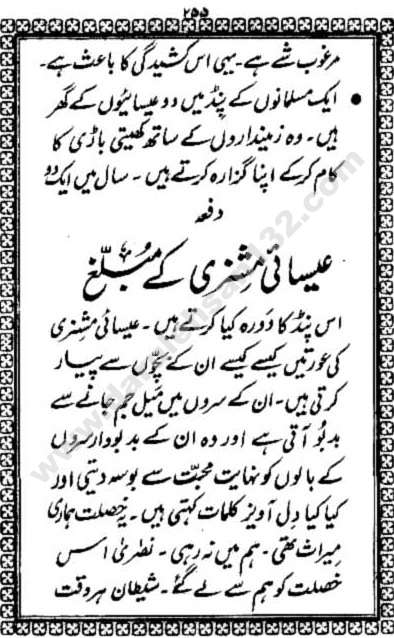 ۲۵۵
مرغوب شے ہے۔ یہی اس کشیدگی کا باعث ہے۔
• ایک مسلمانوں کے پنڈ میں دو عیسائیوں کے گھر
ہیں۔ وہ زمینداروں کے ساتھ کھیتی باڑی کا
کام کرکے اپنا گزارہ کرتے ہیں۔ سال میں ایک دو
دفعہ
عیسائی مشنری کے مُبلّغ
اس پنڈ کا دَورہ کیا کرتے ہیں۔ عیسائی مشنری
کی عورتیں کیسے کیسے ان کے بچّوں سے پیار
کرتی ہیں۔ ان کے سروں میں مَیل جم جانے سے
بدبُو آتی ہے اور وہ ان کے بدبودار سروں
کے بالوں کو نہایت محبّت سے بوسہ دیتی اور
کیا کیا دِل آویز کلمات کہتی ہیں۔ یہ خصلت ہماری
مِیراث تھی۔ ہم میں نہ رہی۔ نصٰریٰ اس
خصلت کو ہم سے لے گئے۔ شیطان ہر وقت